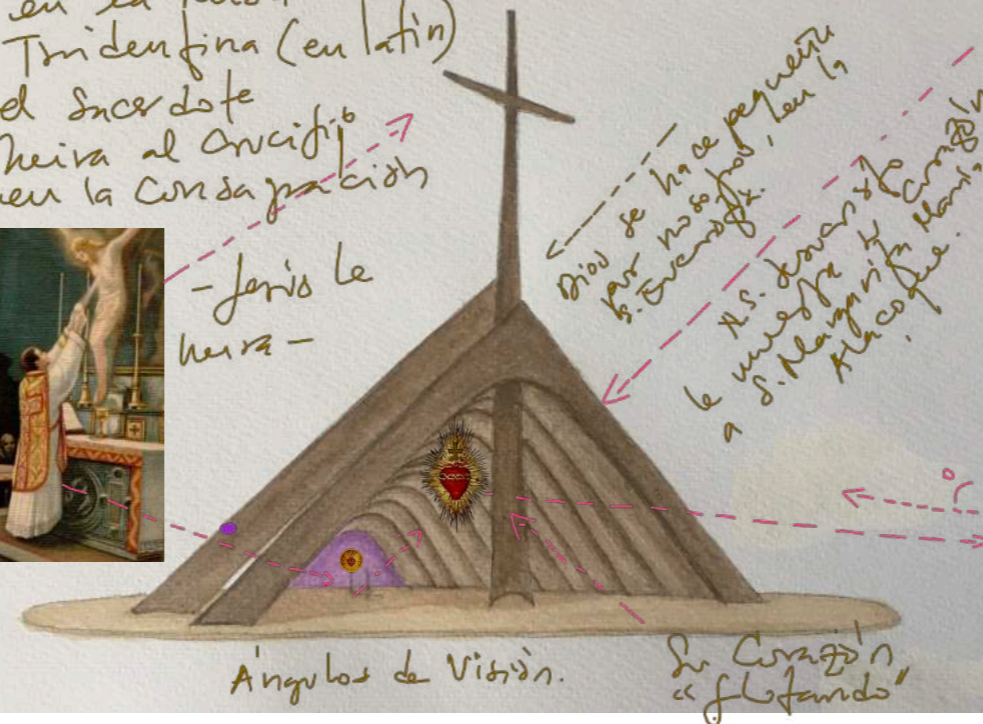 en la
Tridentina (en latin)
el Sacerdote
mira al Crucifijo
en la Consagración
- Jesús le
mira -
Dios se hace pequeño
por nosotros, en la
S. Eucaristía.
N.S. Jesucristo
le muestra su Corazón
a S. Margarita María
Alacoque.
Ángulos de Visión.
Su Corazón
"flotando"